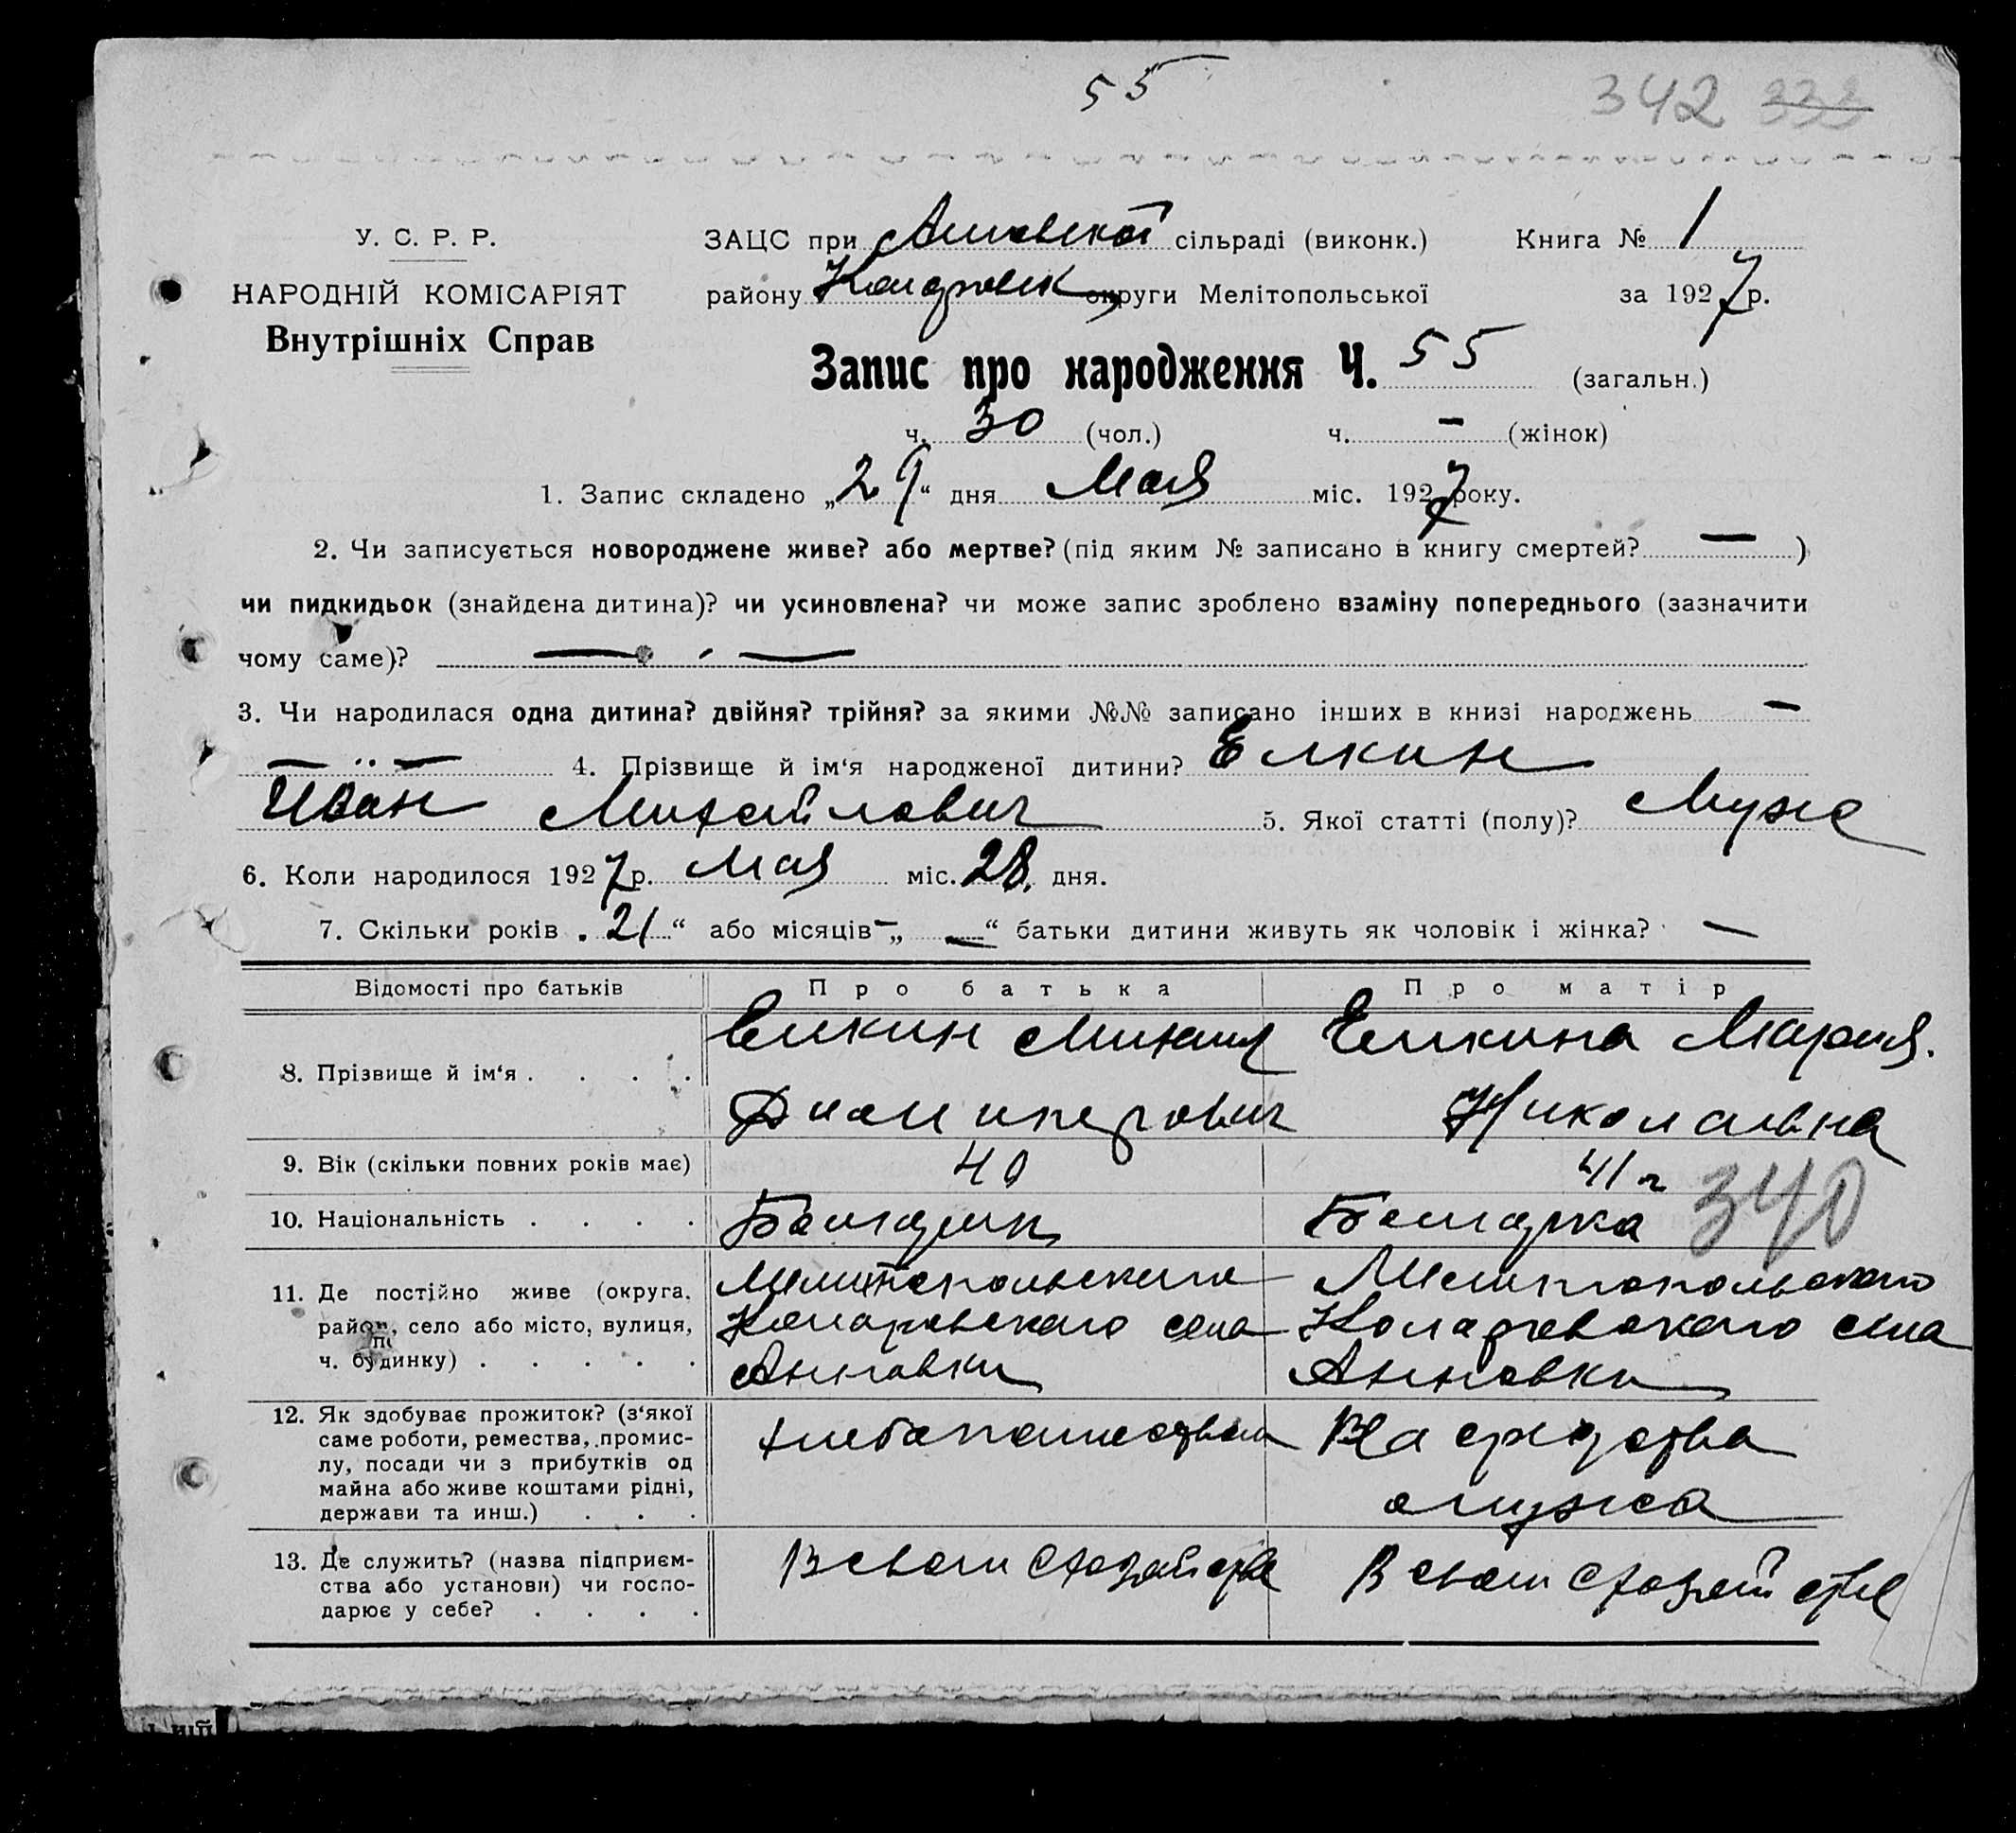 55
342 333
У. С. Р. Р.
НАРОДНІЙ КОМІСАРІЯТ
Внутрішніх Справ
ЗАЦС при сільраді (виконк.) Книга № 1
району округи Мелітопольської за 1927 р.
Запис про народження Ч. 55 (загальн.)
ч. 30 (чол.) ч. – (жінок)
1. Запис складено „29“ дня Мая міс. 1927 року.
2. Чи записується новороджене живе? або мертве? (під яким № записано в книгу смертей? — )
чи пидкидьок (знайдена дитина)? чи усиновлена? чи може запис зроблено взаміну попереднього (зазначити
чому саме)? — —
3. Чи народилася одна дитина? двійня? трійня? за якими №№ записано інших в книзі народжень –
— — 4. Прізвище й ім‘я народженої дитини? Елкин
Иван Михайлович 5. Якої статті (полу)? Муже
6. Коли народилося 1927 р. Мая міс. 28. дня.
7. Скільки років „21“ або місяців – „—“ батьки дитини живуть як чоловік і жінка? —
Відомості про батьків Про батька Про матір
8. Прізвище й ім‘я . . . . Елкин Михаил Елкина Мария.
Николаевна
9. Вік (скільки повних років має) 40 41 г
10. Національність . . . . Болгарин Болгарка 340
11. Де постійно живе (округа, район, село або місто, вулиця, ч. будинку) . . . . . Мелитопольского Коларовского села Анновки Мелитопольского Коларовского села Анновки
12. Як здобуває прожиток? (з‘якої саме роботи, ремества, промислу, посади чи з прибутків од майна або живе коштами рідні, держави та инш.) . . . хлебопашеством На средства мужа
13. Де служить? (назва підприємства або установи) чи господарює у себе? . . . . В своем хозяйстве В своем хозяйстве